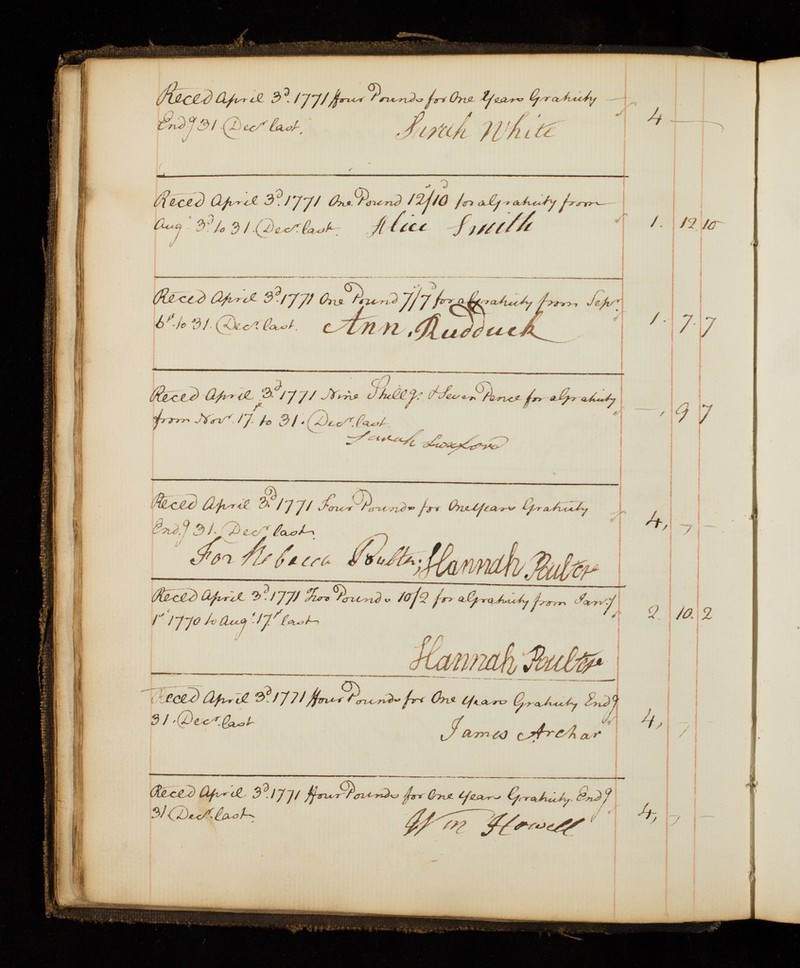 Reced April 3d. 1771 ffour Pounds for One Years Gratuity
Endg 31 Decr last. Sarah White 4
Reced April 3d. 1771 One Pound 12s/10d for a Gratuity from
Augt 3d. to 31. Decr. last. Alice Smith 1. 12 10
Reced April 3d. 1771 One Pound 7s/7d for a Gratuity from Sepr.
6t. to 31. Decr. last. Ann Rudduck 1. 7. 7
Reced April 3d 1771 Nine Shillgs: & Seven Pence for a Gratuity
from Novr. 17t. to 31. Decr. last — , 9 7
Sarah
Reced April 3d 1771 Four Pounds for One years Gratuity
Endg 31. Decr last. 4, , —
For Rebecca Poulter; Hannah Poulter
Reced April 3d. 1771 Two Pounds 10/2 for a Gratuity from Jany
1st 1770 to Augt. 17t last 2. 10. 2
Hannah Poulter
Reced April 3d. 1771 ffour Pounds for One years Gratuity Endg
31. Decr. last James Archar 4, ,
Reced April 3d. 1771 ffour Pounds for One years Gratuity. Endg
31 Decr. last. Wm Howell 4, , —